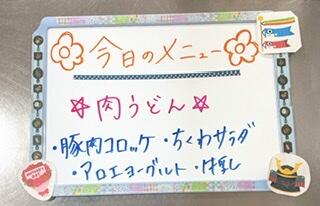 今日のメニュー
☆肉うどん☆
・豚肉コロッケ・ちくわサラダ
・アロエヨーグルト・